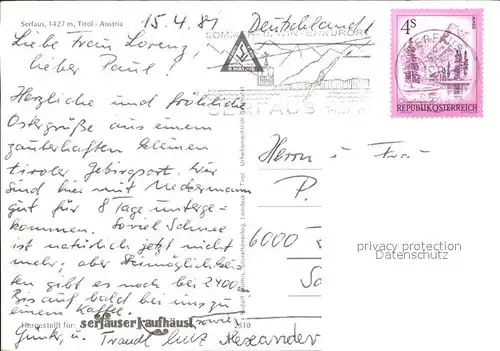 Serfaus, 1427 m, Tirol - Austria
15.4.81 Deutschland!
SOMMER- U. WINTERKURORT
4S
REPUBLIK ÖSTERREICH
SERFAUS
Liebe Frau Lorenz,
lieber Paul!
Herzliche und fröhliche
Ostergrüße aus einem
zauberhaften kleinen
tiroler Gebirgsort. Wir
sind hier mit Neckermann
gut für 8 Tage unterge-
kommen. Soviel Schnee
ist natürlich jetzt nicht
mehr, aber
ten gibt es noch bei 2400 m
Bis auf bald bei uns zu
einem Kaffee.
Herrn u. Frau
P.
6000
privacy protection
Datenschutz
Hergestellt für: serfauser kaufhäusl
sowie
u. Traudl Alexander